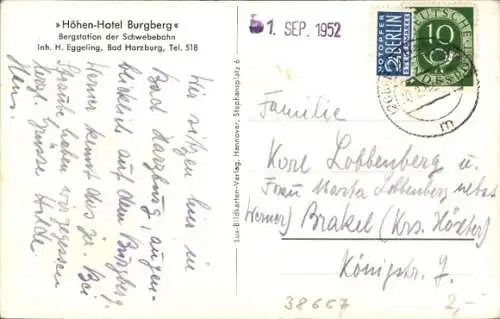 » Höhen-Hotel Burgberg «
Bergstation der Schwebebahn
Inh. H. Eggeling, Bad Harzburg, Tel. 518
Wir sitzen hier in
Bad Harzburg, augen-
blicklich auf dem Burgberg.
Werner kennt das ja. Bei
haben wir gegessen
Herzl. Grüsse Hilde
Lux-Bildkarten-Verlag, Hannover, Stephansplatz 6
1. SEP. 1952
NOTOPFER
2 BERLIN
STEUERMARKE
DEUTSCHE
10
Familie
Karl Lobbenberg u.
Frau Marta Lobbenberg nebst
Werner) Brakel (Krs. Höxter)
Königstr. 7.
38667
2,-
m